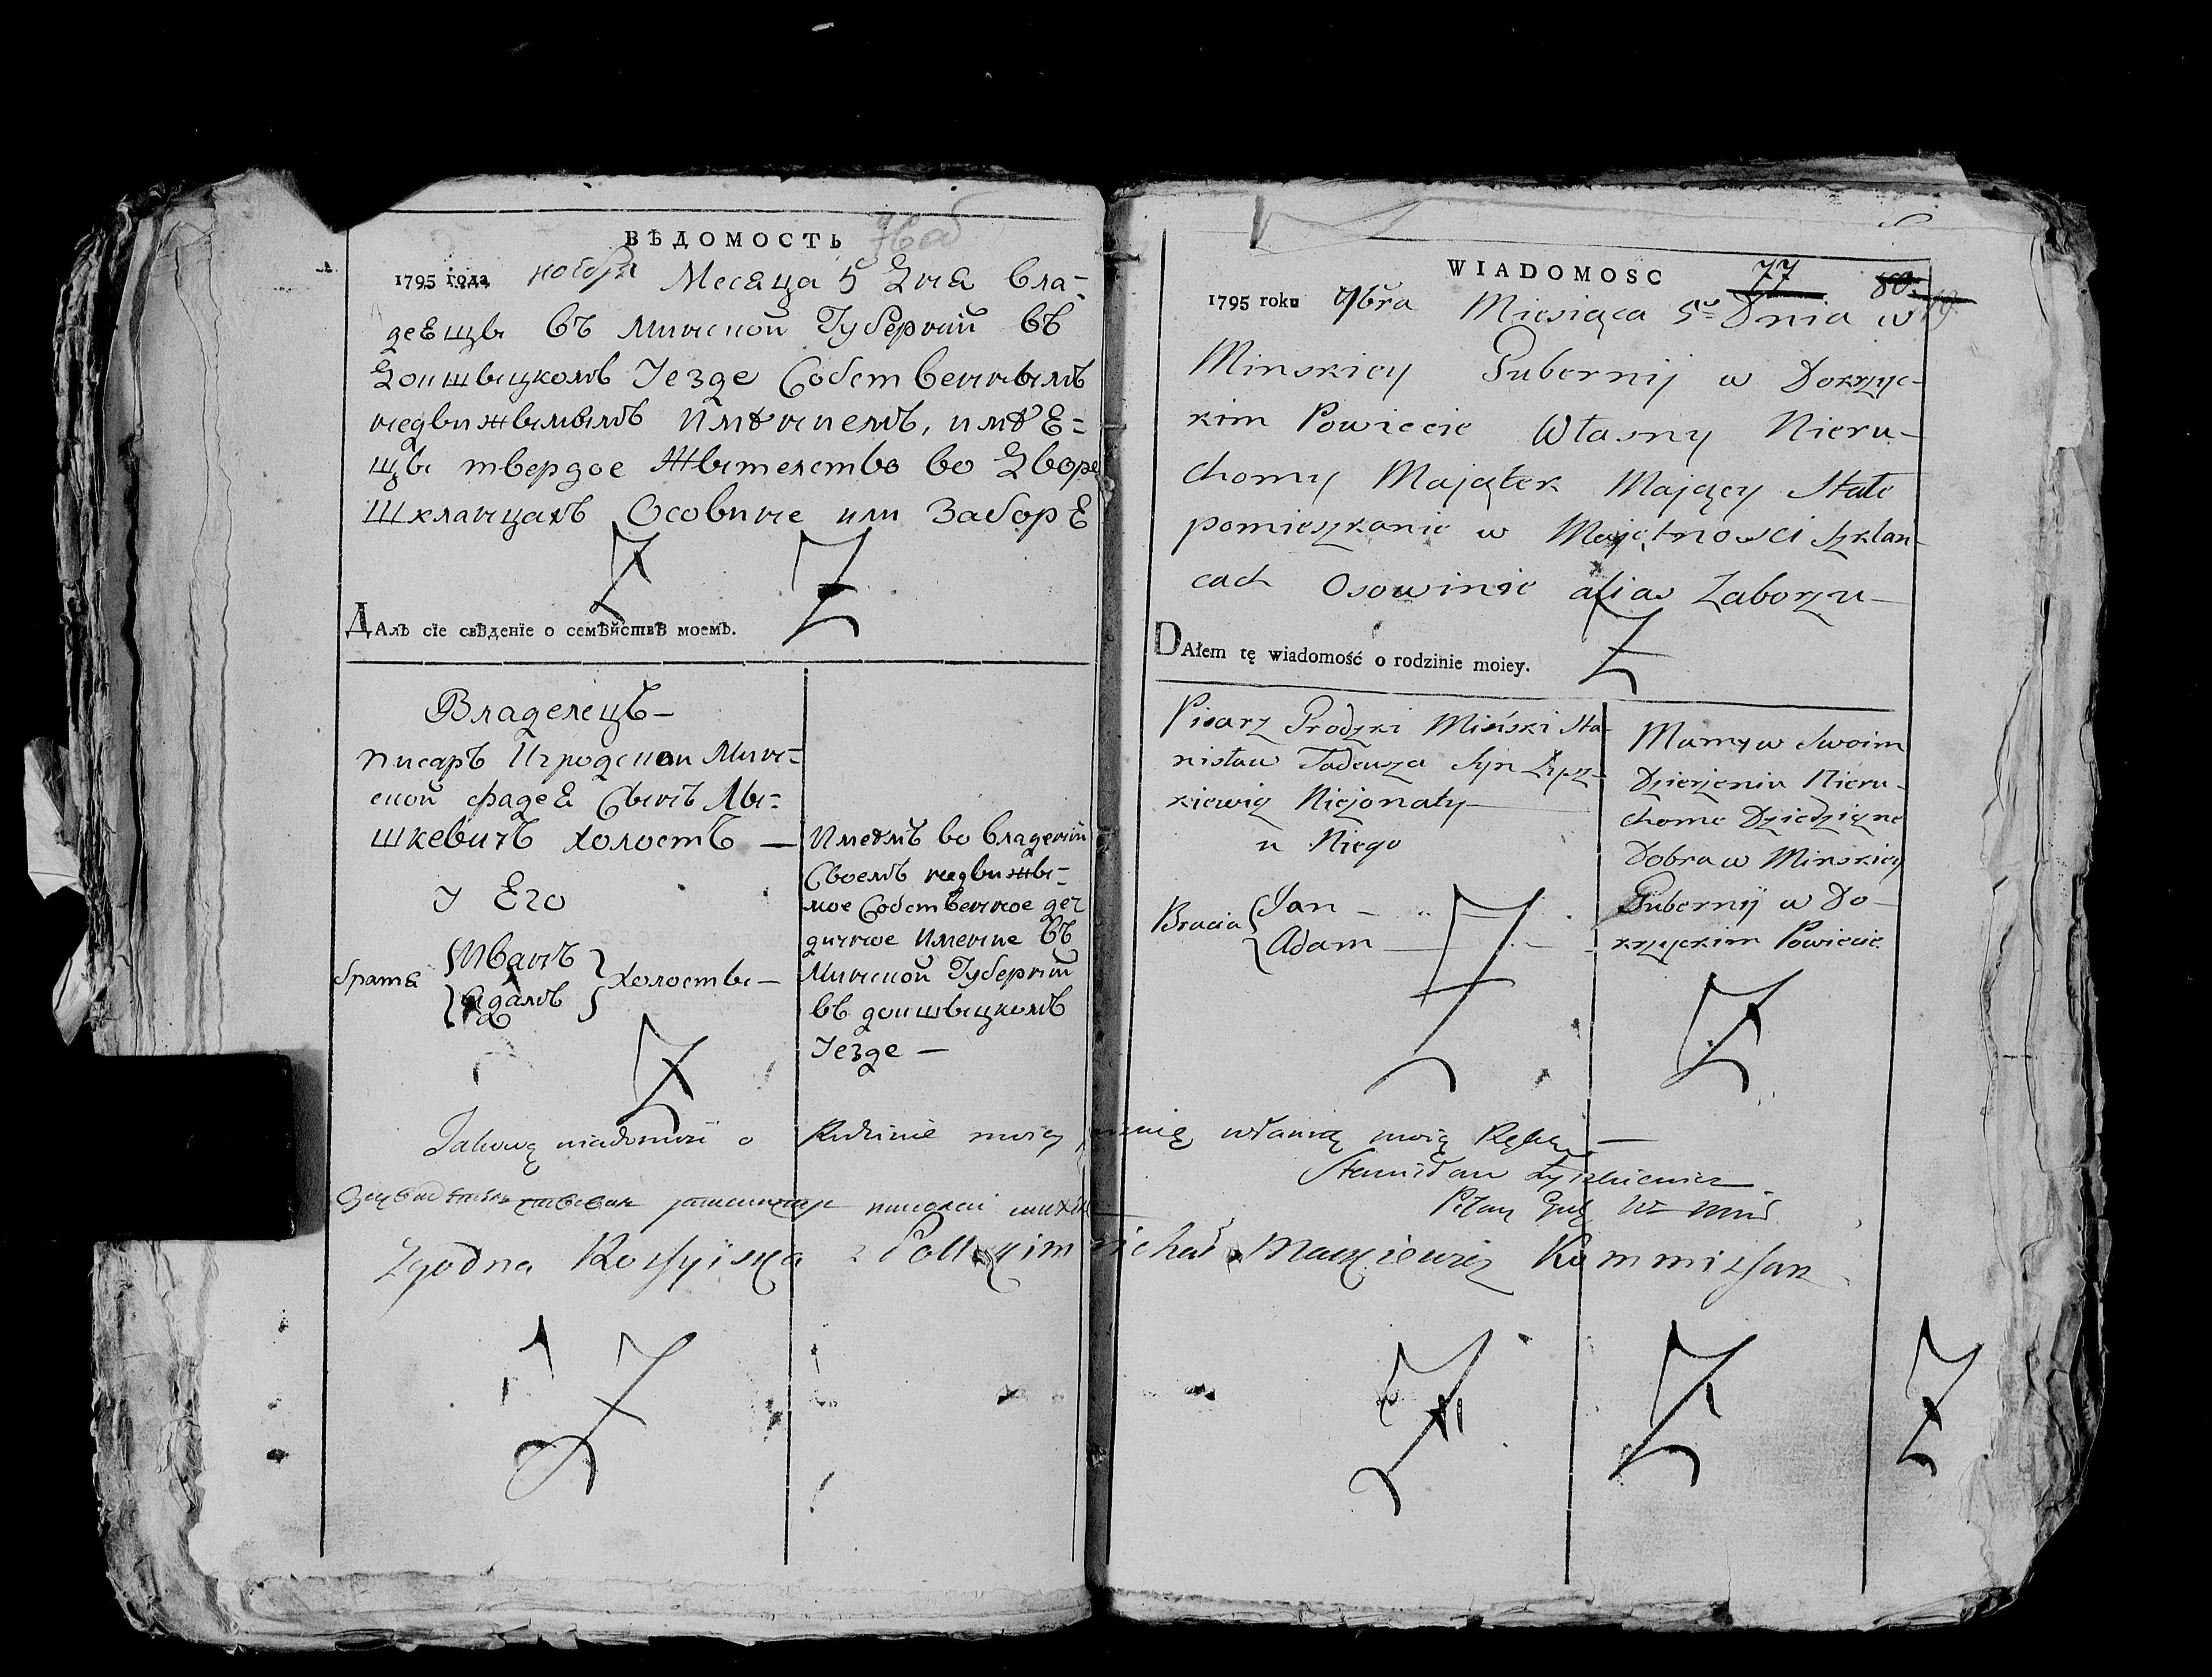 ВѢДОМОСТЬ 76 об
1795 года ноабра Месаца 5 Дня Вла-
деещи въ Минской Губерній въ
Докшыцкомъ Уезде Собственнымъ
недвижымымъ Имѣниемъ, имѣе-
щы твердое Жытелство во Дворе
Шкланцахъ Особине или Заборе
ДАлъ сїе свѣденїе о семѣйствѣ моемъ.
Владелецъ-
писаръ Игродской Мин-
ской фадеа Сынъ Лы-
шкевичъ холостъ —
У Его
брата {Иванъ
{Адамъ } холосты —
Имеемъ во владений
Своемъ недвижы-
мое Собственное де
дичное Имение въ
Минской Губерний
въ докшыцкомъ
Уезде —
WIADOMOSC 77
1795 roku 9bra Miesiąca 5º Dnia w
Minskiey Gubernij w Dokrzyc-
kim Powiecie Własny Nieru-
chomy Majątek Mający Stałe
pomieszkanie w Majętnosci Szklan-
cach Osowinie alias Zaborzu
DAłem tę wiadomość o rodzinie moiey.
Pisarz Grodzki Miński Sta-
nisław Tadeusza Syn Łysz-
kiewicz Nieżonaty
u Niego
Bracia {Jan
{Adam
Mamy w Swoim
Dzierżeniu Nieru-
chome Dziedziczne
Dobra w Minskiey
Gubernij w Do-
krzyckim Powiecie
Takową wiadomość o Rodzinie moiey własną moią Ręką —
Stanisław Łyszkiewicz
Pisarz Grdz Wa Miń
Zgodna Rossyiska z Polskim Michał Mackiewicz Kommissarz